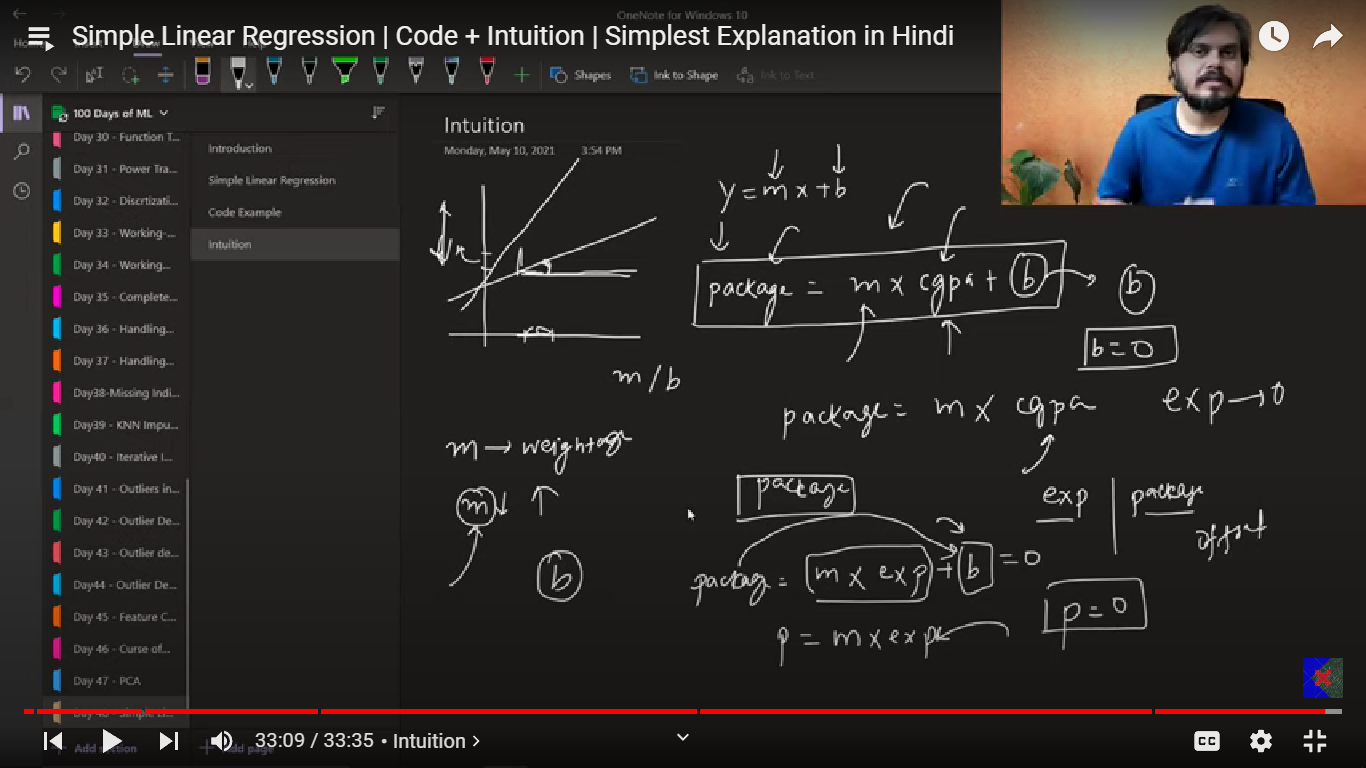 OneNote for Windows 10
Simple Linear Regression | Code + Intuition | Simplest Explanation in Hindi
Shapes
Ink to Shape
Ink to Text
100 Days of ML
Day 30 - Function T...
Day 31 - Power Tra...
Day 32 - Discrtizati...
Day 33 - Working-...
Day 34 - Working...
Day 35 - Complete...
Day 36 - Handling...
Day 37 - Handling...
Day38-Missing Indi...
Day39 - KNN Impu...
Day40 - Iterative I...
Day 41 - Outliers in...
Day 42 - Outlier De...
Day 43 - Outlier de...
Day44 - Outlier De...
Day 45 - Feature C...
Day 46 - Curse of...
Day 47 - PCA
Day 48 - Simple Li...
Add section
Introduction
Simple Linear Regression
Code Example
Intuition
Add page
Intuition
Monday, May 10, 2021 3:54 PM
y = m x + b
package = m x cgpa + b
b
b = 0
m / b
package = m x cgpa
exp → 0
m → weightage
m ↓ ↑
b
package
exp | package
offset
package = m x exp + b = 0
p = 0
p = m x exp
33:09 / 33:35 • Intuition >
CC